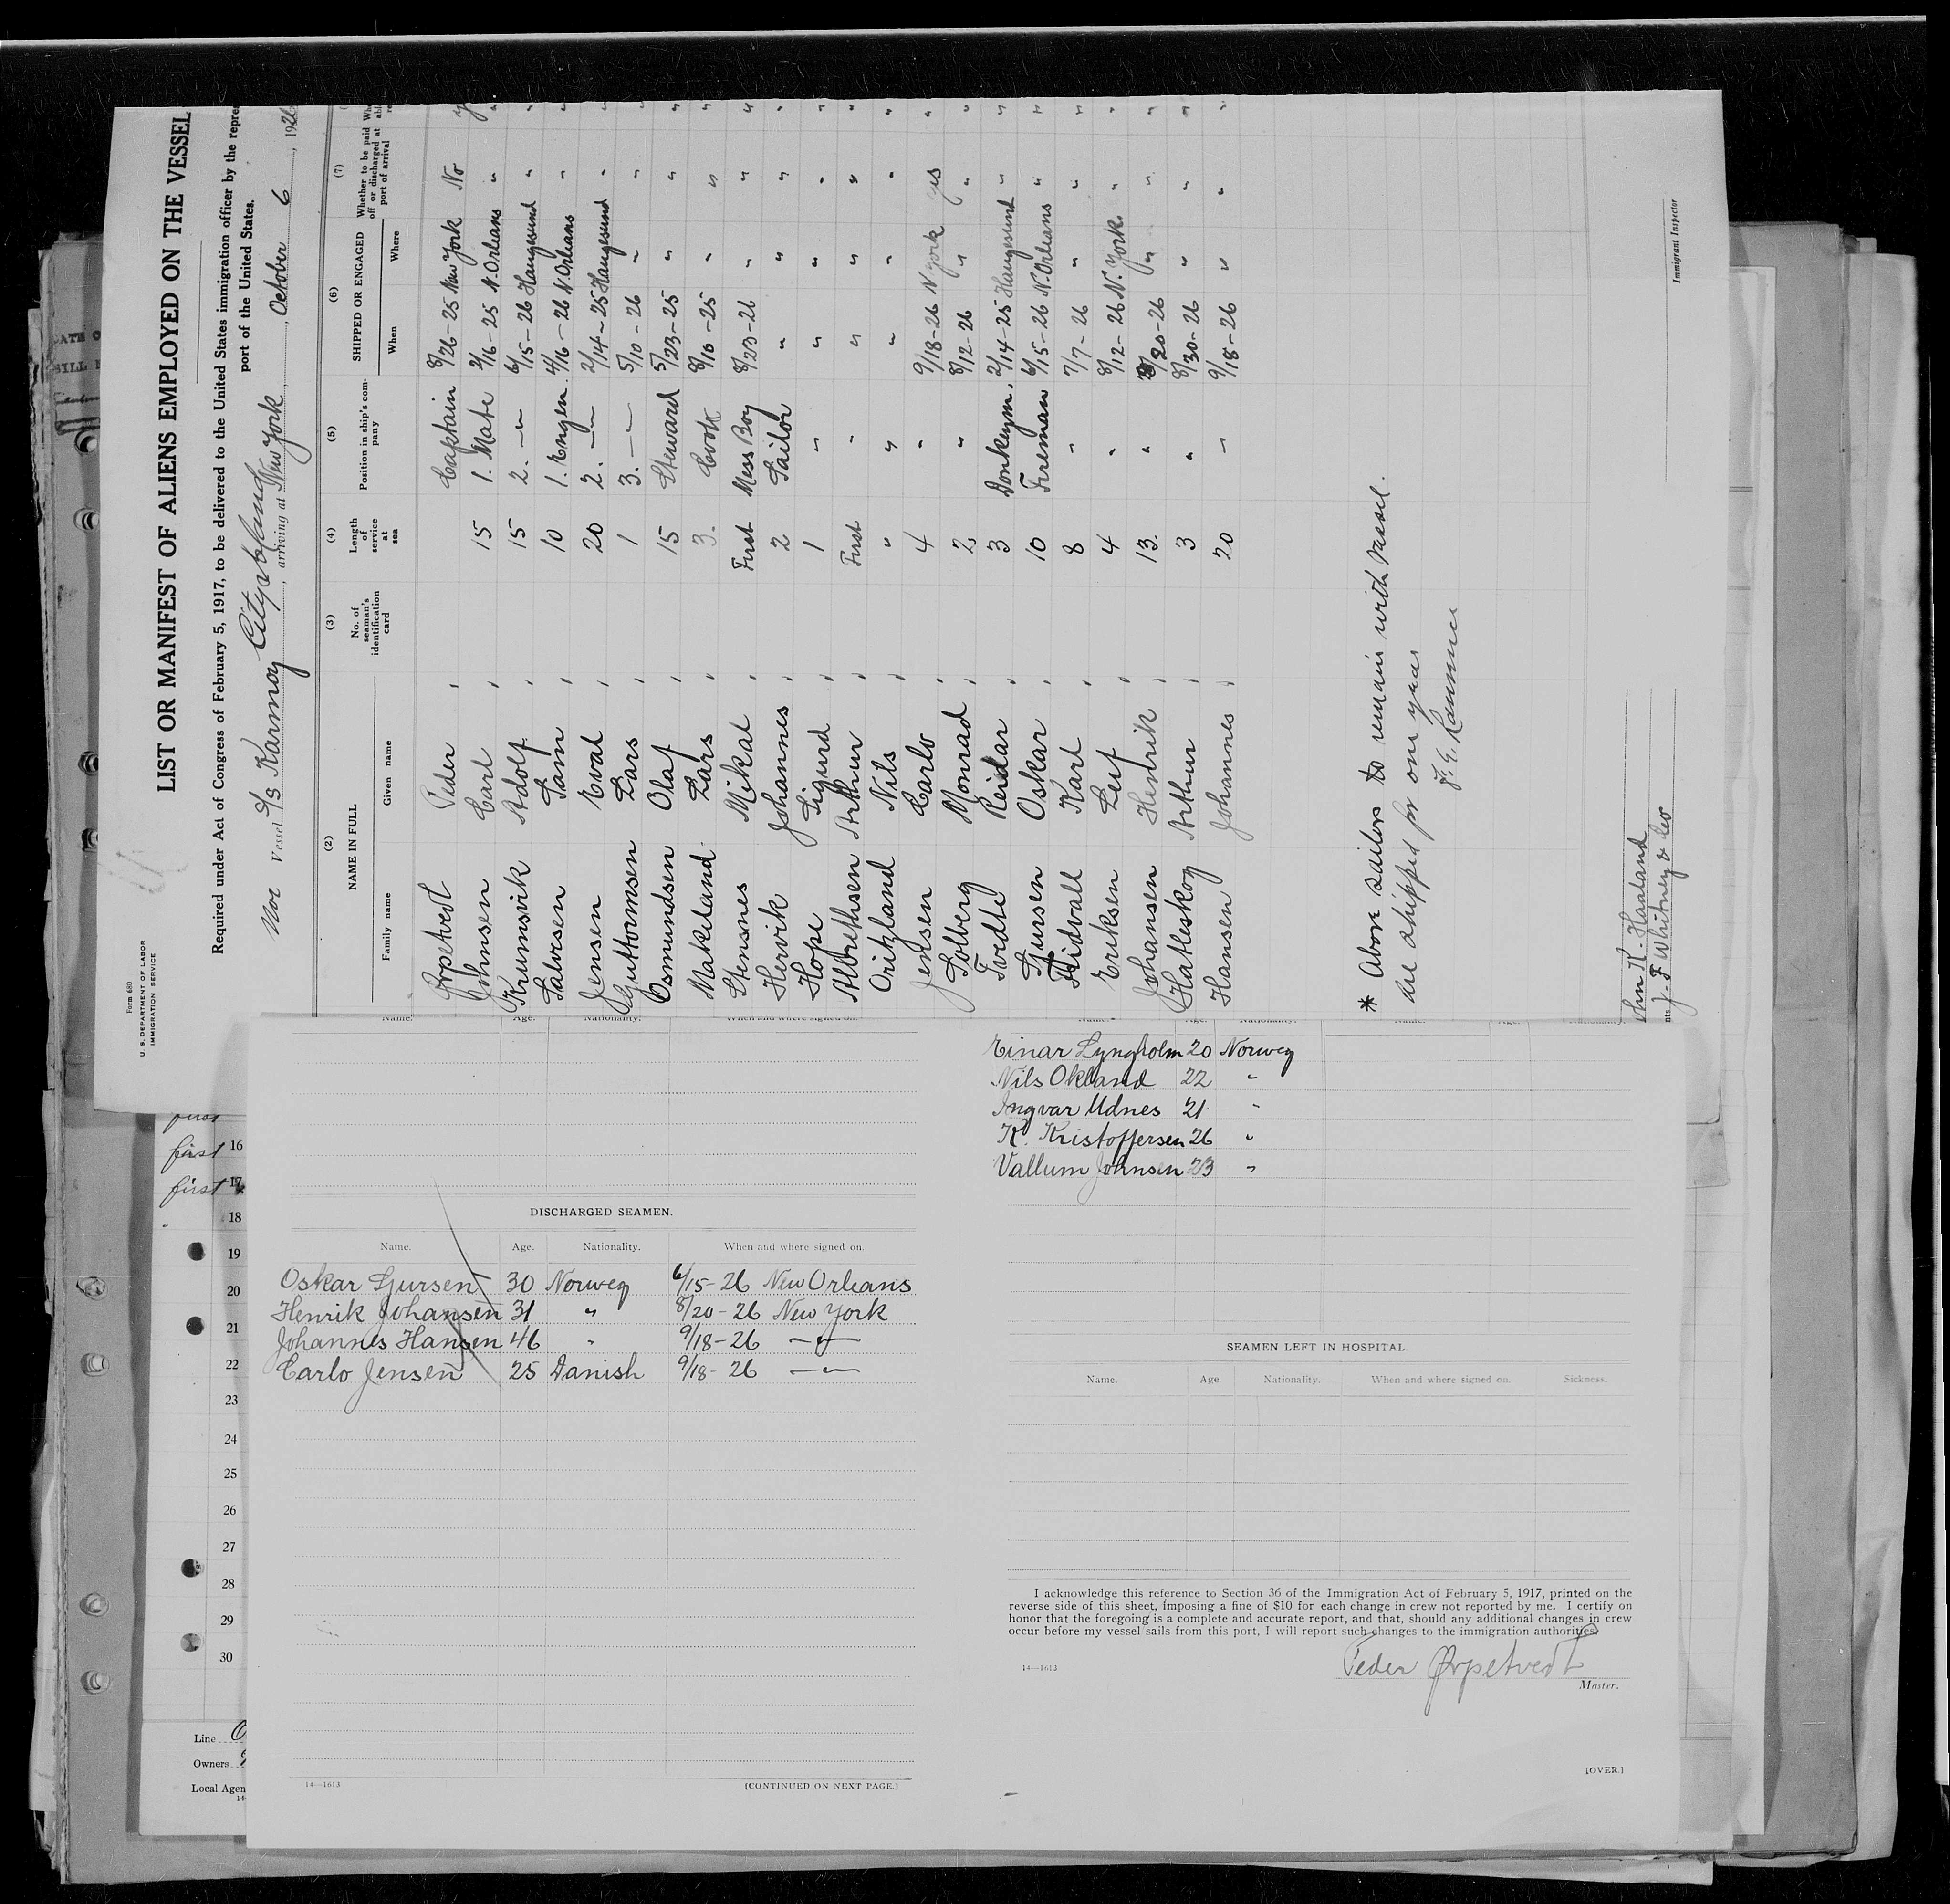 Form 680
U. S. DEPARTMENT OF LABOR
IMMIGRATION SERVICE
LIST OR MANIFEST OF ALIENS EMPLOYED ON THE VESSEL
Required under Act of Congress of February 5, 1917, to be delivered to the United States immigration officer by the repre
port of the United States.
Nor Vessel S/S Karmoy City Island, arriving at New York, October 6, 1926
(2) (3) (4) (5) (6) (7)
NAME IN FULL No. of seaman's identification card Length of service at sea Position in ship's company SHIPPED OR ENGAGED Whether to be paid off or discharged at port of arrival
Family name Given name When Where
Ørpetvedt Peder Captain 8/26-25 New York No
Johnsen Carl 15 1. Mate 2/16-25 N.Orleans "
Krumsvik Adolf 15 2. -"- 6/15-26 Haugesund "
Salvesen Tam 10 1. Engen. 4/16-26 N.Orleans "
Jensen Eval 20 2. -"- 2/14-25 Haugesund "
Guttormsen Lars 1 3. -"- 5/10-26 " "
Osmundsen Olaf 15 Steward 5/23-25 " "
Makeland Lars 3. Cook 8/10-25 " "
Stensnes Mikal First Mess Boy 8/23-26 " "
Hervik Johannes 2 Sailor " " "
Hope Sigurd 1 " " " "
Albrethsen Arthur First " " " "
Oritzland Nils " " " " "
Jensen Carlo 4 " 9/18-26 N York yes
Solberg Monrad 2 " 8/12-26 " "
Tvedte Reidar 3 Donkeym. 2/14-25 Haugesund "
Gjursen Oskar 10 Fireman 6/15-26 N.Orleans "
Hidvall Karl 8 " 7/7-26 " "
Eriksen Leif 4 " 8/12-26 N. York "
Johansen Henrik 13. " 8/20-26 " "
Hatleskog Arthur 3 " 8/30-26 " "
Hansen Johannes 20 " 9/18-26 " "
* Above sailors to remain with vessel.
are shipped for one year
John K. Haaland
J. F Whitney & Co
Immigrant Inspector
first
first 16
first 17
18
19
20
21
22
23
24
25
26
27
28
29
30
Line
Owners
Local Agen
14-
Name. Age. Nationality. When and where signed on.
DISCHARGED SEAMEN.
Name. Age. Nationality. When and where signed on.
Oskar Gjursen 30 Norweg 6/15-26 New Orleans
Henrik Johansen 31 " 8/20-26 New York
Johannes Hansen 46 " 9/18-26 -"-
Carlo Jensen 25 Danish 9/18-26 -"-
14—1613
[CONTINUED ON NEXT PAGE.]
Name. Age. Nationality. Name. Age. Nationality.
Einar Lyngholm 20 Norweg
Nils Okland 22 "
Ingvar Udnes 21 "
K. Kristoffersen 26 "
Vallum Johnsen 23 "
SEAMEN LEFT IN HOSPITAL.
Name. Age. Nationality. When and where signed on. Sickness.
I acknowledge this reference to Section 36 of the Immigration Act of February 5, 1917, printed on the
reverse side of this sheet, imposing a fine of $10 for each change in crew not reported by me. I certify on
honor that the foregoing is a complete and accurate report, and that, should any additional changes in crew
occur before my vessel sails from this port, I will report such changes to the immigration authorities.
14—1613
Peder Ørpetvedt
Master.
[OVER.]